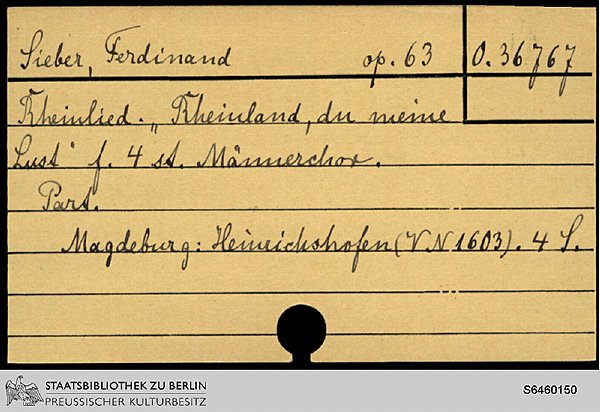 Sieber, Ferdinand op. 63 O. 36767
Rheinlied. „Rheinland, du meine
Lust" f. 4 st. Männerchor.
Part.
Magdeburg: Heinrichshofen (V N 1603). 4 S.
STAATSBIBLIOTHEK ZU BERLIN
PREUSSISCHER KULTURBESITZ
S6460150